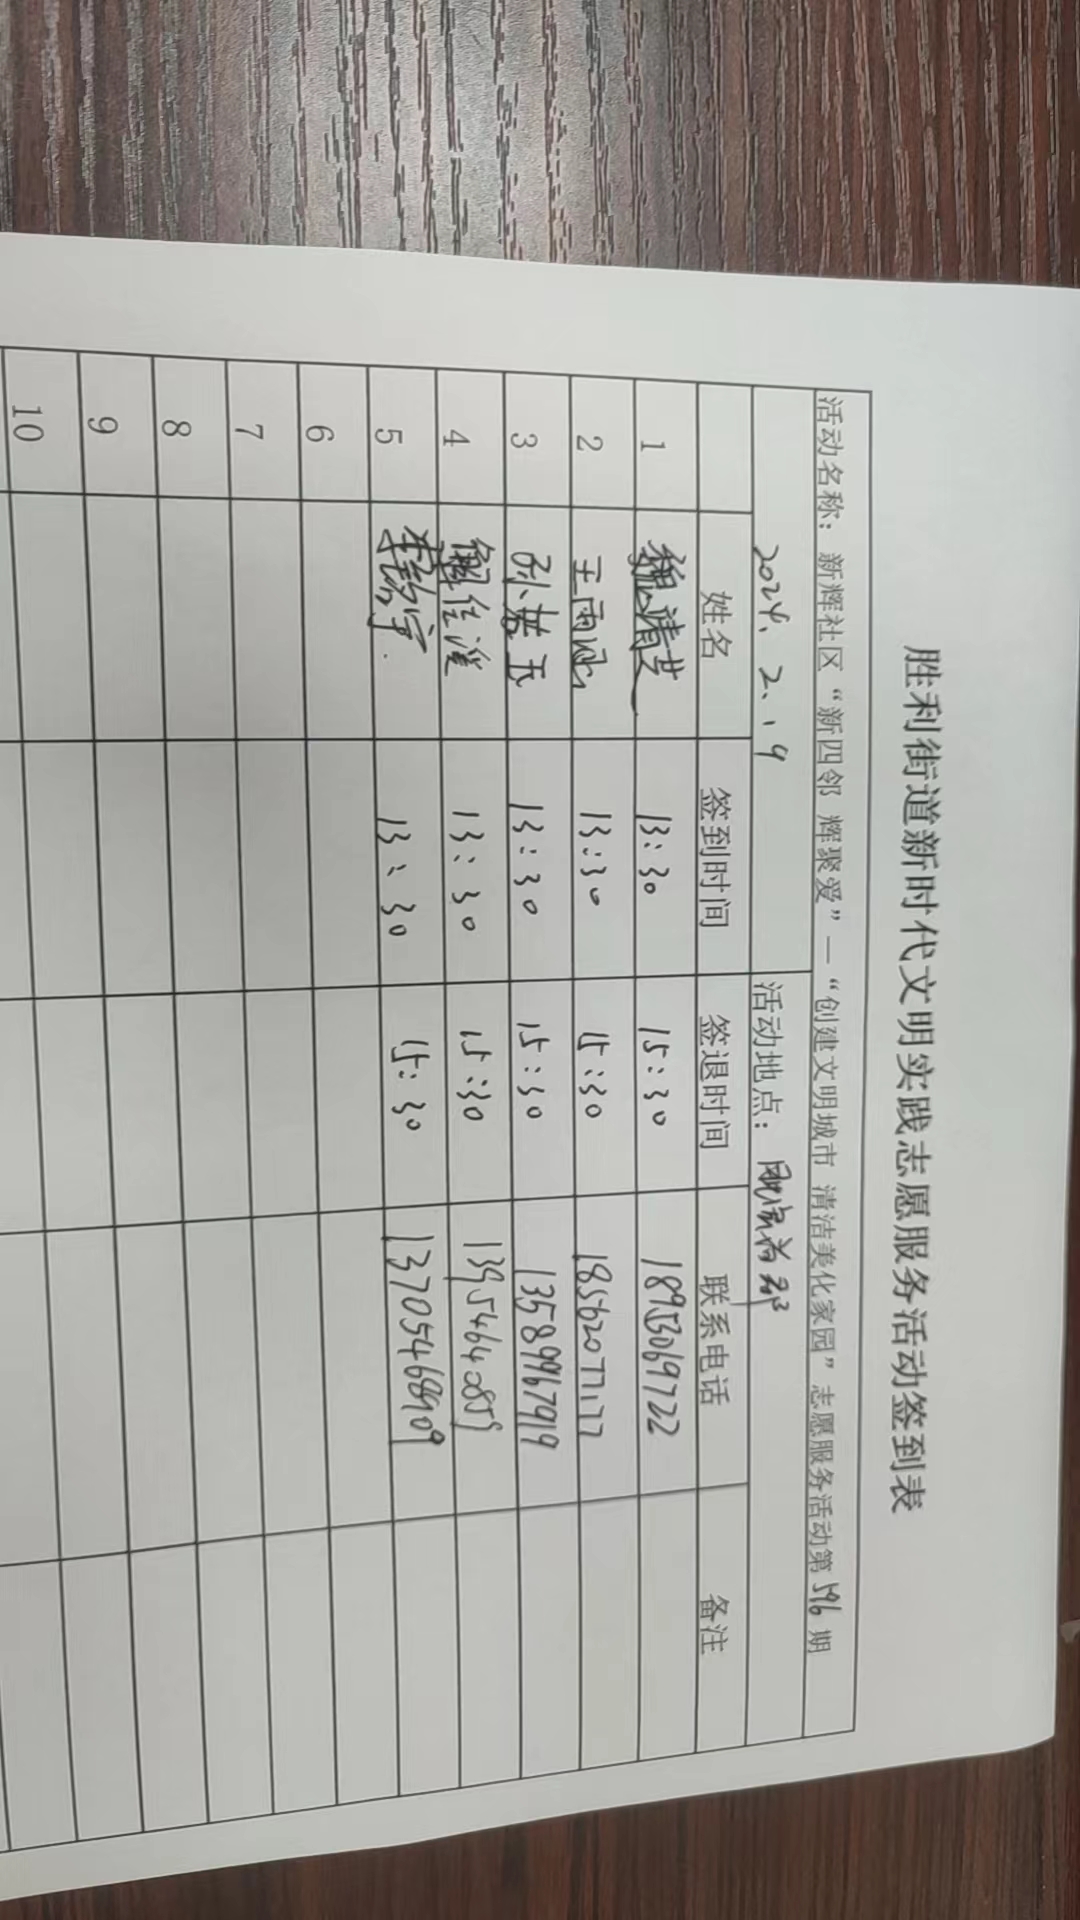 胜利街道新时代文明实践志愿服务活动签到表
活动名称：新辉社区“新四邻 辉聚爱”—“创建文明城市 清洁美化家园”志愿服务活动第596期
2024.2.19 活动地点：
姓名 签到时间 签退时间 联系电话 备注
1 魏清芝 13:30 15:30 18953069722
2 王雨 13:30 15:30 18562077177
3 孙若玉 13:30 15:30 13589967919
4 解佳滢 13:30 15:30 13954640859
5 李 宇 13:30 15:30 13705468909
6
7
8
9
10